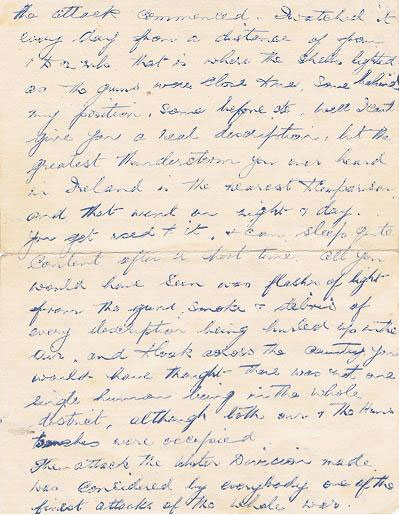 the attack commenced. I watched it
every day from a distance of from
1 to 2 mls that is where the shells lighted
as the guns were close to me, some behind
my position, some before it, well I can't
give you a real description, but the
greatest thunderstorm you ever heard
in Ireland is the nearest to comparison
and that went on night & day.
You get used to it, & can sleep quite
content after a short time. All you
would have seen was flashes of light
from the guns, smoke & debris of
every description being hurled up in the
air, and to look across the country you
would have thought there was not one
single human being in the whole
district, although both our & the Huns
trenches were occupied.
The attack the Ulster Division made
was considered by everybody one of the
finest attacks of the whole war.